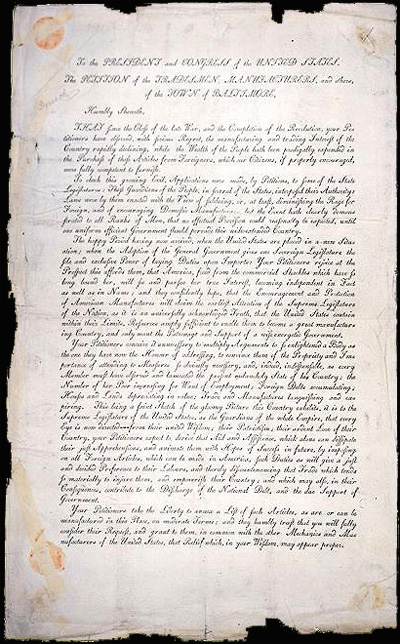 To the PRESIDENT and CONGRESS of the UNITED STATES.
The PETITION of the TRADESMEN, MANUFACTURERS, and others,
of the TOWN of BALTIMORE,
Humbly Sheweth,
THAT since the Close of the late War, and the Completion of the Revolution, your Pe-
titioners have observed, with serious Regret, the manufacturing and trading Interest of the
Country rapidly declining, while the Wealth of the People hath been prodigally expended in
the Purchase of those Articles from Foreigners, which our Citizens, if properly encouraged,
were fully competent to furnish.
To check this growing Evil, Applications were made, by Petitions, to some of the State
Legislatures: These Guardians of the People, in several of the States, interposed their Authority:
Laws were by them enacted with the View of subduing, or, at least, diminishing the Rage for
Foreign, and of encouraging Domestic Manufactures; but the Event hath clearly demon-
strated to all Ranks of Men, that no effectual Provision could reasonably be expected, until
one uniform efficient Government should pervade this wide-extended Country.
The happy Period having now arrived, when the United States are placed in a new Situ-
ation; when the Adoption of the General Government gives one Sovereign Legislature the
sole and exclusive Power of laying Duties upon Imports; Your Petitioners rejoice at the
Prospect this affords them, that America, freed from the commercial Shackles which have so
long bound her, will see and pursue her true Interest, becoming independent in Fact
as well as in Name; and they confidently hope, that the Encouragement and Protection
of American Manufactures will claim the earliest Attention of the Supreme Legislature
of the Nation; as it is an universally acknowledged Truth, that the United States contain
within their Limits, Resources amply sufficient to enable them to become a great manufactur-
ing Country, and only want the Patronage and Support of a wise energetic Government.
Your Petitioners conceive it unnecessary to multiply Arguments to so enlightened a Body as
the one they have now the Honour of addressing, to convince them of the Propriety and Im-
portance of attending to Measures so obviously necessary, and, indeed, indispensible, as every
Member must have observed and lamented the present melancholy State of his Country; the
Number of her Poor increasing for Want of Employment; Foreign Debts accumulating;
Houses and Lands depreciating in value; Trade and Manufactures languishing and ex-
piring. This being a faint Sketch of the gloomy Picture this Country exhibits, it is to the
Supreme Legislature of the United States, as the Guardians of the whole Empire, that every
Eye is now directed: from their united Wisdom, their Patriotism, their ardent Love of their
Country, your Petitioners expect to derive that Aid and Assistance, which alone can dissipate
their just Apprehensions, and animate them with Hopes of Success in future, by imposing
on all Foreign Articles, which can be made in America, such Duties as will give a just
and decided Preference to their Labours, and thereby discountenancing that Trade which tends
so materially to injure them, and impoverish their Country; and which may also, in their
Consequences, contribute to the Discharge of the National Debt, and the due Support of
Government.
Your Petitioners take the Liberty to annex a List of such Articles, as are or can be
manufactured in this Place, on moderate Terms; and they humbly trust that you will fully
consider their Request, and grant to them, in common with the other Mechanics and Man-
ufacturers of the United States, that Relief which, in your Wisdom, may appear proper.